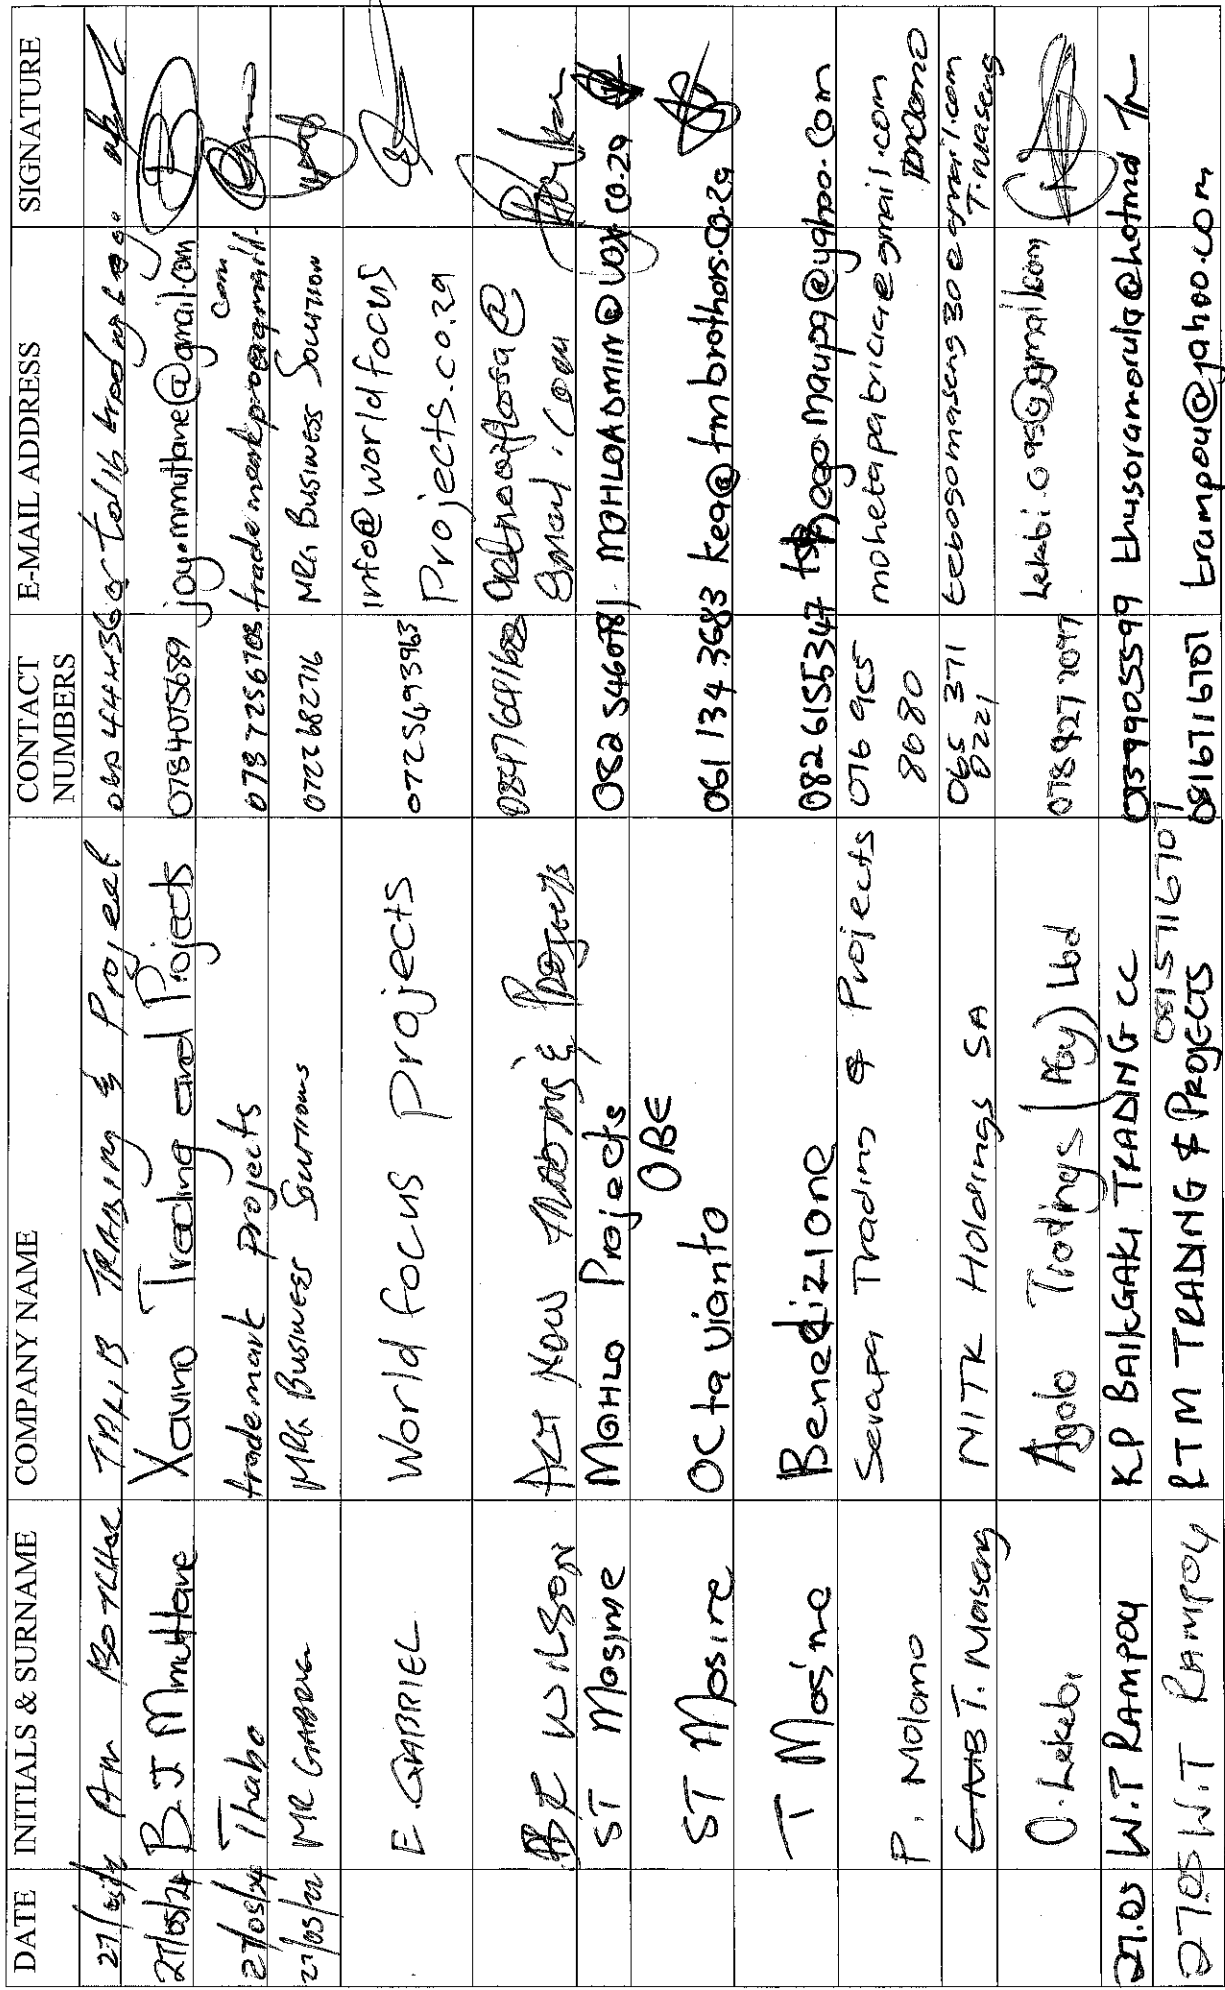 DATE INITIALS & SURNAME COMPANY NAME CONTACT NUMBERS E-MAIL ADDRESS SIGNATURE
27/05/24 TRADING & Project
27/05/24 B.J Mmutlane Xavino Trading and Projects 0784075689 joymmutlane@gmail.com
27/05/24 Thabo trademark projects 0787256708
27/05/22 MR GABRIEL MRG BUSINESS SOLUTIONS 0722682716 MRG BUSINESS SOLUTION
E.GABRIEL World focus projects 0725693963 info@worldfocus
Projects.co.zg
WILSON ACT NOW TRADING & PROJECTS
gmail.com
ST Mosime MOHLO Projects 082 5460781 MOHLOADMIN@vox.co.zg
OBE
ST Mosire OCtavianto 061 134 3683 kea@tmbrothors.co.zg
T Mosime Benedizione 082 6155347 maupa@yahoo.com
P. Molomo Serapa Trading & Projects 076 965
8680 mohetapatricia@gmail.com
T. Maseng NITK Holdings SA 065 371
0221 tebogomaseng30@gmail.com
T.maseng
O. Lekabi Agolo Tradings (Pty) Ltd 078 927 7097
27.05 W.T RAMPOU KP BAIKGAKI TRADING CC 0739905599 thusoramorula@hotma
0815711670
27.05 W.T RAMPOU RTM TRADING & PROJECTS 0816711670 trampou@yahoo.com